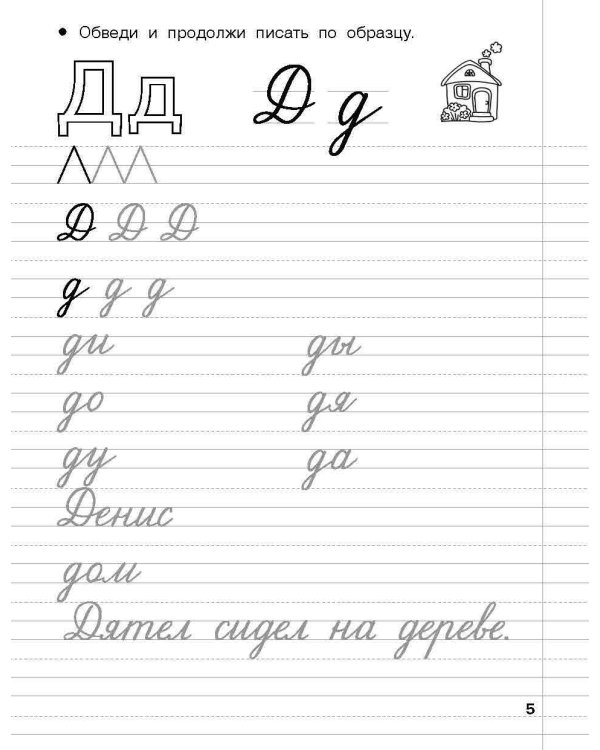 Обведи и продолжи писать по образцу.
Дд Д д
Д Д Д
д д д
ди ды
до дя
ду да
Денис
дом
Дятел сидел на дереве.
5